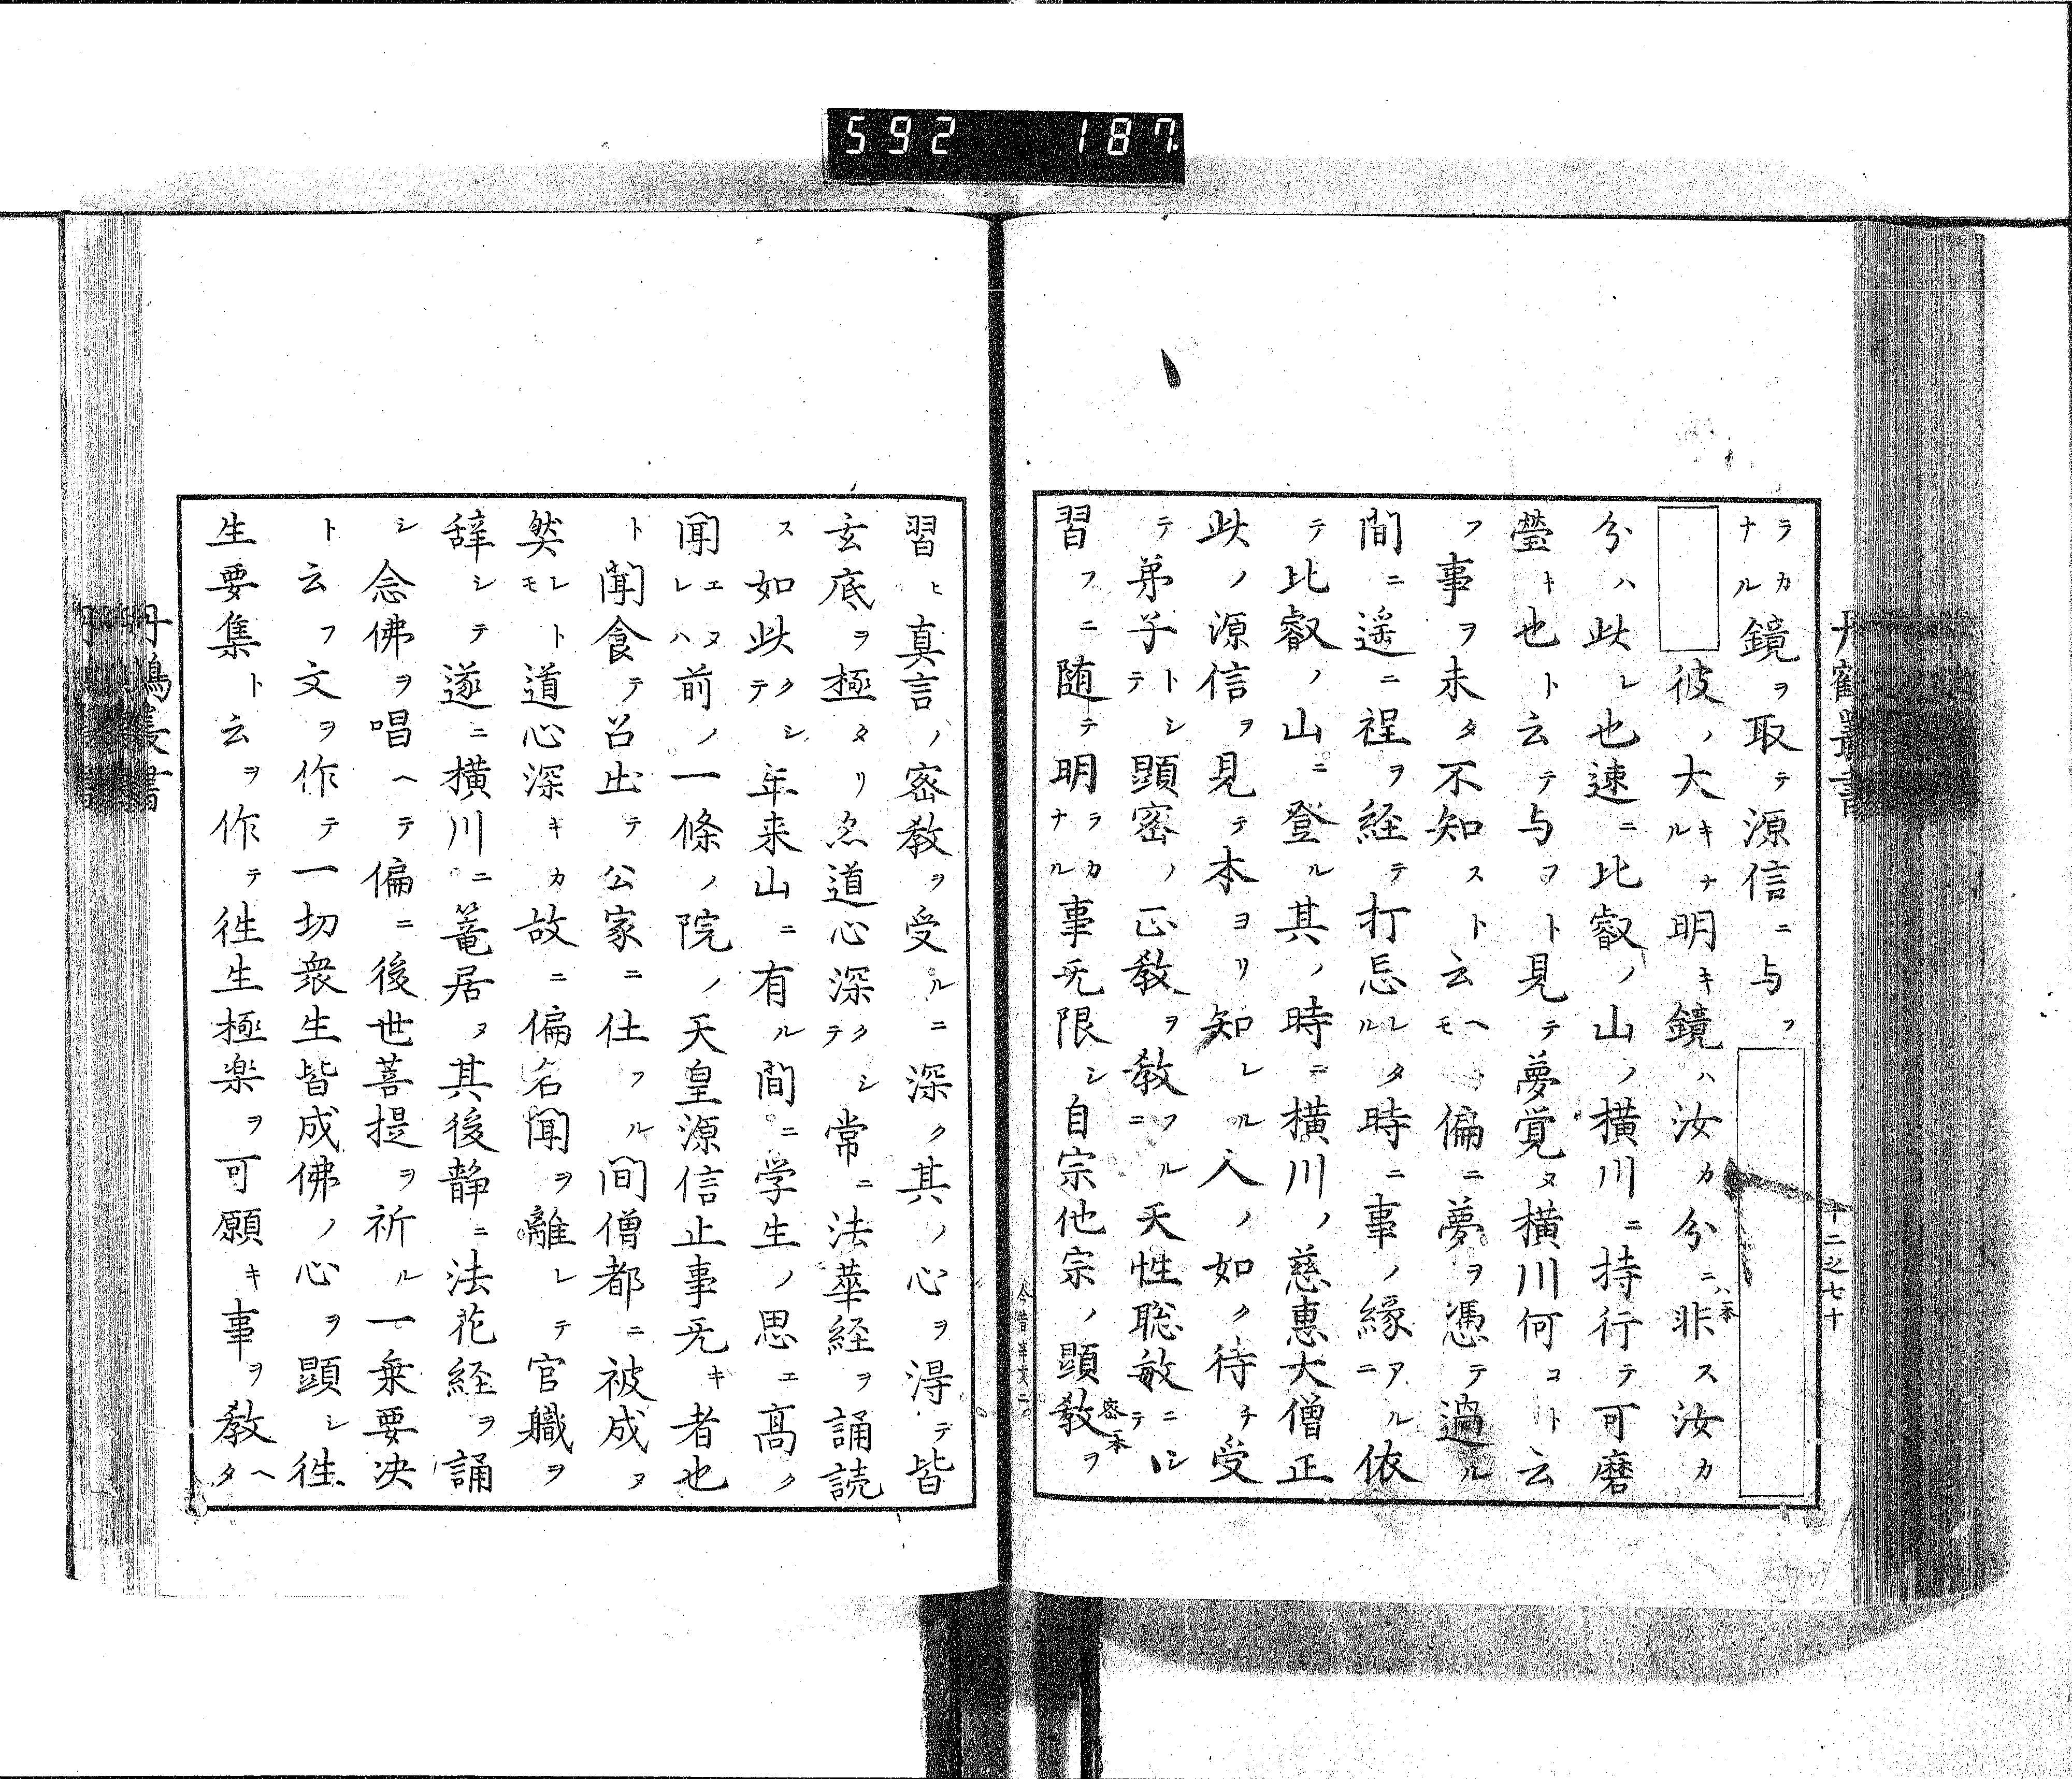 592 187
丹鶴叢書
十二之七十
ナラルカ鏡ヲ取テ源信ニ与フ
彼ノ大キナル明キ鏡ハ汝カ分ニ非ス汝カ
ハ一本
分ハ此レ也速ニ比叡ノ山ノ横川ニ持行テ可磨
瑩キ也ト云テ与フト見テ夢覚ヌ横川何コト云
フ事ヲ未タ不知ストト云ヘモ偏ニ夢ヲ憑テ過ル
間ニ遥ニ程ヲ経テ打忘レタル時ニ事ノ縁アルニ依
テ比叡ノ山ニ登ル其ノ時ニ横川ノ慈惠大僧正
此ノ源信ヲ見テ本ヨリ知レル人ノ如ク待チ受
テ弟子トシテ顕密ノ正教ヲ教フルニ天性聡敏ニシテ
習フニ随テ明ラカナル事无限シ自宗他宗ノ顕教ヲ
密一本
習ヒ真言ノ密教ヲ受ルニ深ク其ノ心ヲ得テ皆
玄底ヲ極タリ亦道心深クシテ常ニ法華経ヲ誦読
ス如此クシテ年来山ニ有ル間ニ学生ノ思エ高ク
聞エヌレハ前ノ一條ノ院ノ天皇源信止事无キ者也
ト聞食テ召出テ公家ニ仕フル間僧都ニ被成ヌ
然レトモ道心深キカ故ニ偏名聞ヲ離レテ官職ヲ
辞シテ遂ニ横川ニ篭居ヌ其後静ニ法花経ヲ誦
シ念佛ヲ唱ヘテ偏ニ後世菩提ヲ祈ル一乗要决
ト云フ文ヲ作テ一切衆生皆成佛ノ心ヲ顕シ徃
生要集ト云ヲ作テ徃生極楽ヲ可願キ事ヲ教ヘタ
丹鶴叢書